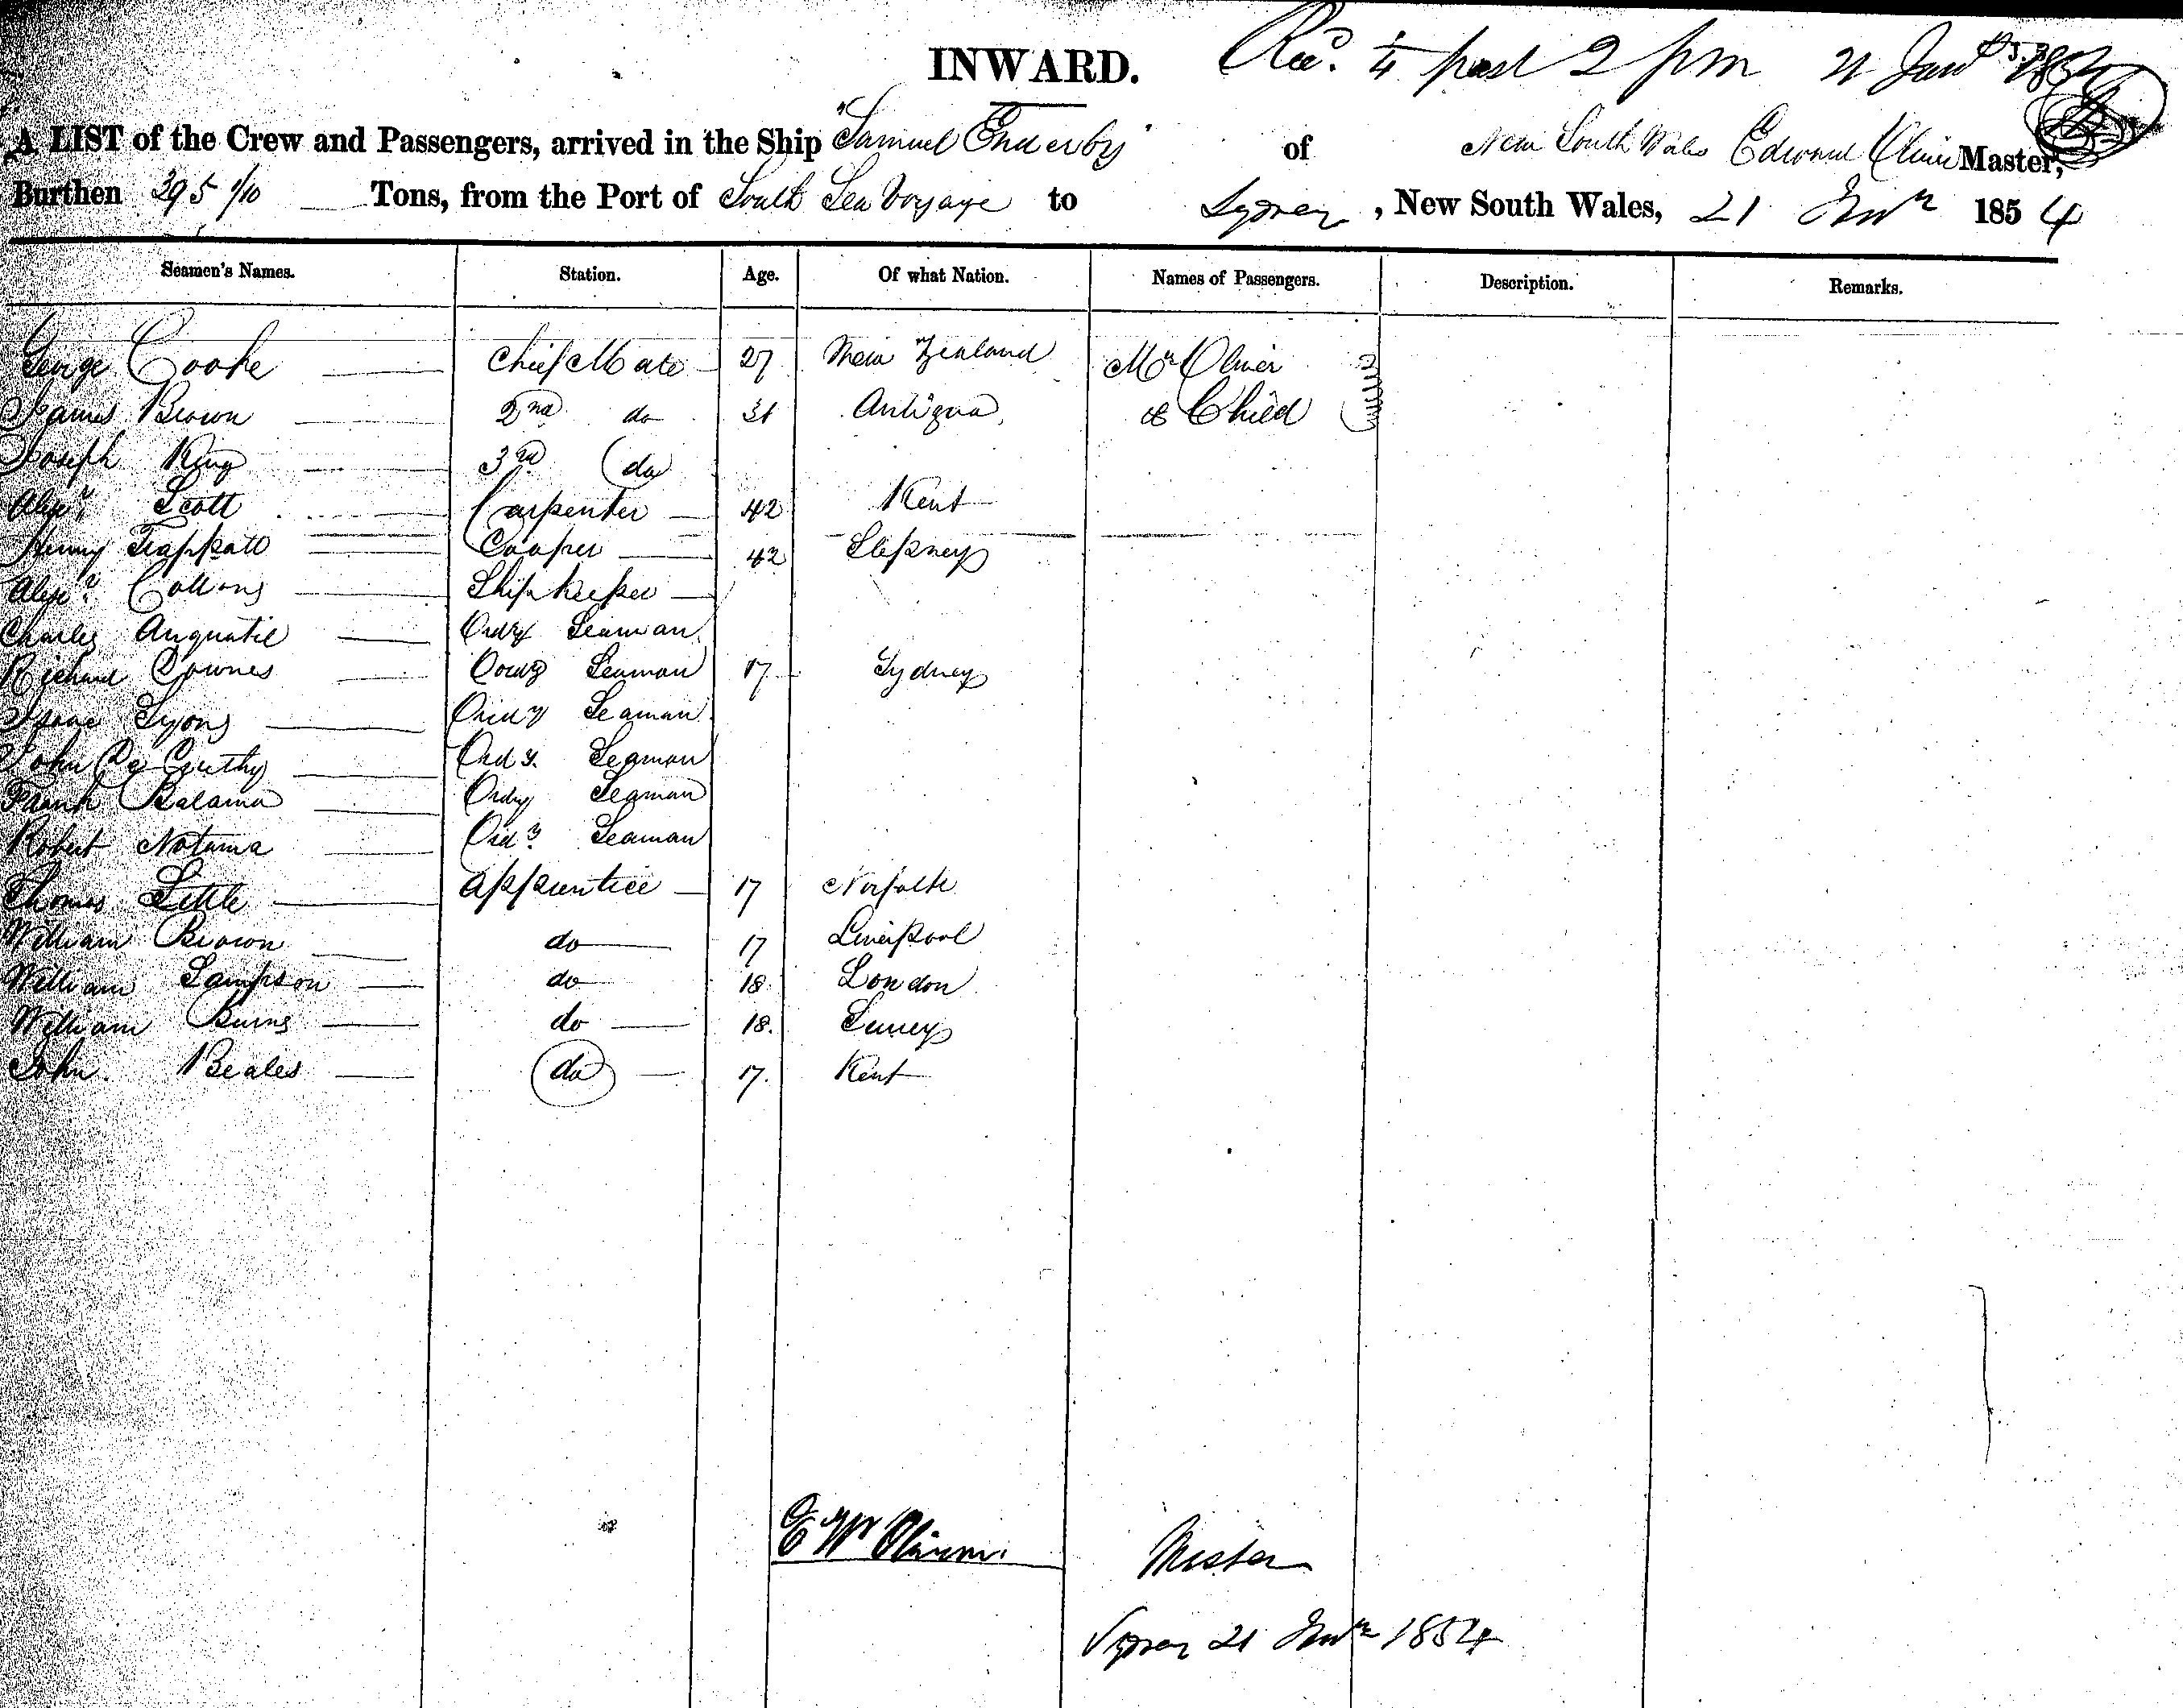 INWARD. Rec. 1/4 past 2 pm 21 Jany
A LIST of the Crew and Passengers, arrived in the Ship "Samuel Enderby" of New South Wales Edward Oliver Master,
Burthen 395 1/10 Tons, from the Port of South Sea Voyage to Sydney, New South Wales, 21 1854
Seamen's Names. Station. Age. Of what Nation. Names of Passengers. Description. Remarks.
George Cooke Chief Mate 27 New Zealand Mrs Oliver
James Brown 2nd do 31 Antigua, & Child
Joseph King 3rd do
Alexr Scott Carpenter 42 Kent
Henry Cooper 42 Stepney
Alexr Ship keeper
Charles Anquatil Ordy Seaman
Richard Ordy Seaman 17 Sydney
Isaac Lyons Ordy Seaman
John Ordy Seaman
Frank Balama Ordy Seaman
Robert Notuma Ordy Seaman
Thomas Little Apprentice 17 Norfolk
William Brown do 17 Liverpool
William Sampson do 18 London
William Burns do 18. Surrey
John Beales do 17. Kent
E W Oliver. Master
Sydney 21 1854